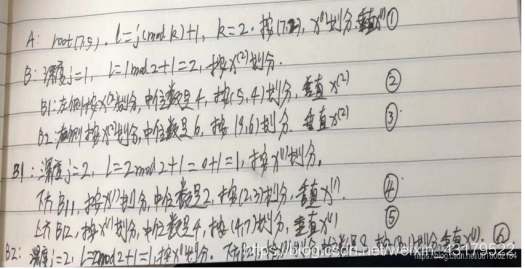 A: root(7,5). l=j(mod k)+1, k=2. 按(7,2), x⁽¹⁾划分. 垂直x⁽¹⁾ ①
B: 深度j=1, l=1mod2+1=2, 按x⁽²⁾划分.
B1: 左侧按x⁽²⁾划分, 中位数是4, 按(5,4)划分, 垂直x⁽²⁾ ②
B2: 右侧按x⁽²⁾划分, 中位数是6, 按(9,6)划分, 垂直x⁽²⁾ ③
B1: 深度j=2, l=2mod2+1=0+1=1, 按x⁽¹⁾划分,
下方B11, 按x⁽¹⁾划分, 中位数是2, 按(2,3)划分, 垂直x⁽¹⁾. ④
上方B12, 按x⁽¹⁾划分, 中位数是4, 按(4,7)划分, 垂直x⁽¹⁾ ⑤
B2: 深度j=2, l=2mod2+1=1, 按x⁽¹⁾划分. 划分, 垂直x⁽¹⁾. ⑥
https://blog.csdn.net/weixin_43179522